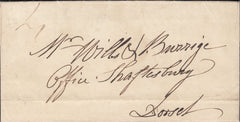 Mr Wills & Burrige
Office Shaftesbury
Dorset